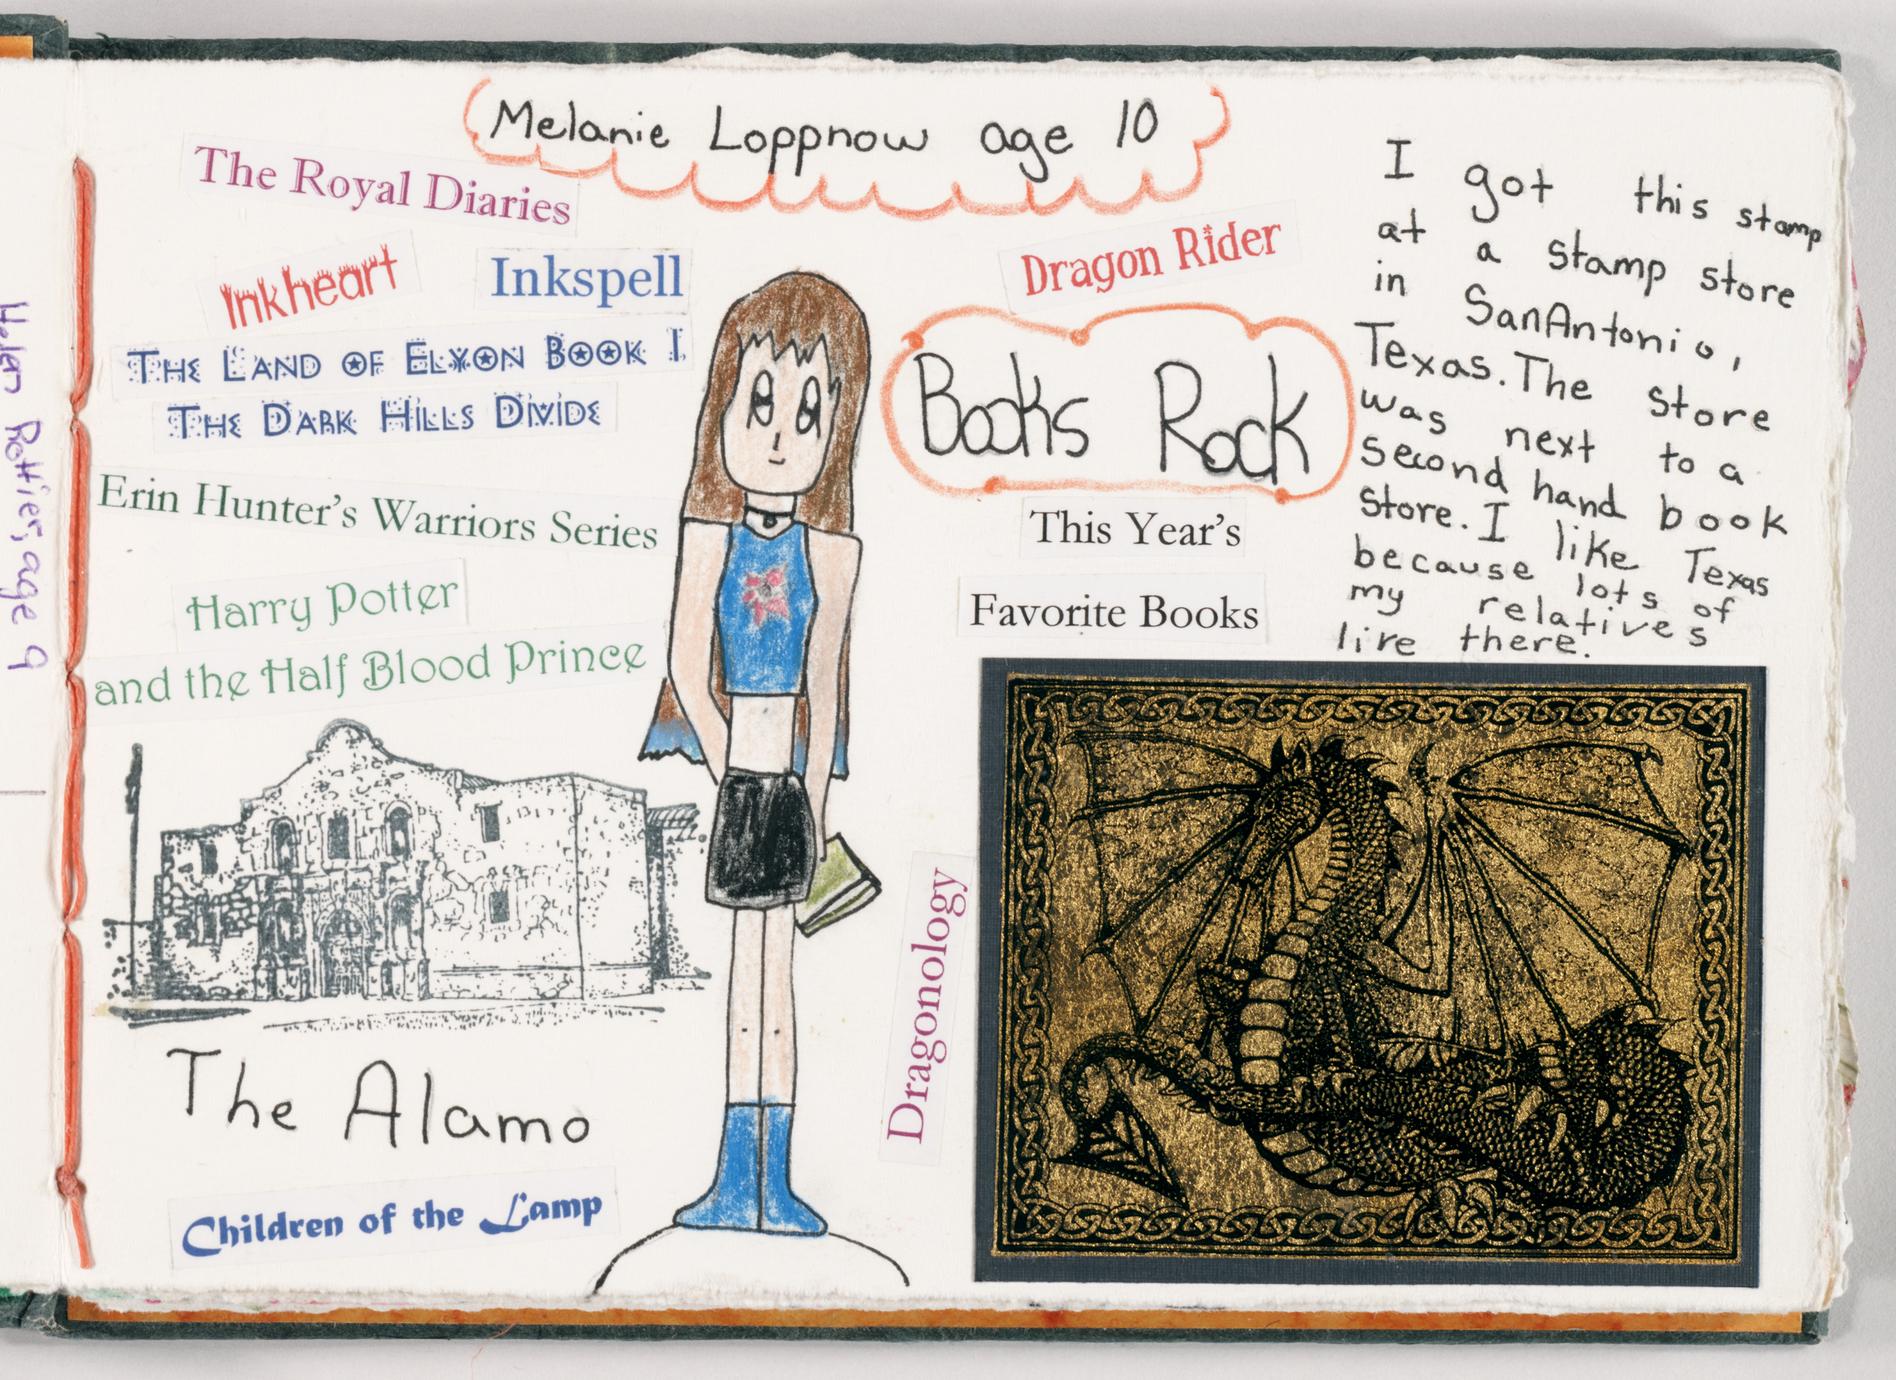 Melanie Loppnow age 10
The Royal Diaries
Inkheart
Inkspell
The Land of Elyon Book I
The Dark Hills Divide
Erin Hunter's Warriors Series
Harry Potter
and the Half Blood Prince
The Alamo
Children of the Lamp
Dragon Rider
Books Rock
This Year's
Favorite Books
Dragonology
I got this stamp
at a stamp store
in SanAntonio,
Texas. The store
was next to a
second hand book
store. I like Texas
because lots of
my relatives
live there.
Helen Pottier, age 9